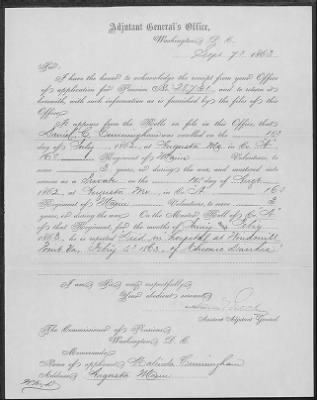 Adjutant General's Office,
Washington, D. C.
Sept. 7th, 1863
Sir:
I have the honor to acknowledge the receipt from your Office
of application for Pension No. 28721, and to return it
herewith, with such information as is furnished by the files of this
Office.
It appears from the Rolls on file in this Office, that
Daniel C. Cunningham was enrolled on the
day of July, 1862, at Augusta Me, in Co. A
16th Regiment of Maine Volunteers, to
serve 3 years, or during the war, and mustered into
service as a Private on the 14th day of
1862, at Augusta Me, in Co. A 16th
Regiment of Maine Volunteers, to serve 3
years, or during the war. On the Muster Roll of Co. A
of that Regiment, for the months of
1863, he is reported Died in hospital at Windmill
Point Va, Feby 2d 1863, of Chronic Diarrhea
I am, Sir, very respectfully,
Your obedient servant,
Assistant Adjutant General.
The Commissioner of Pensions
Washington, D. C.
Memoranda:
Name of applicant, Malinda Cunningham
Address, Augusta Maine